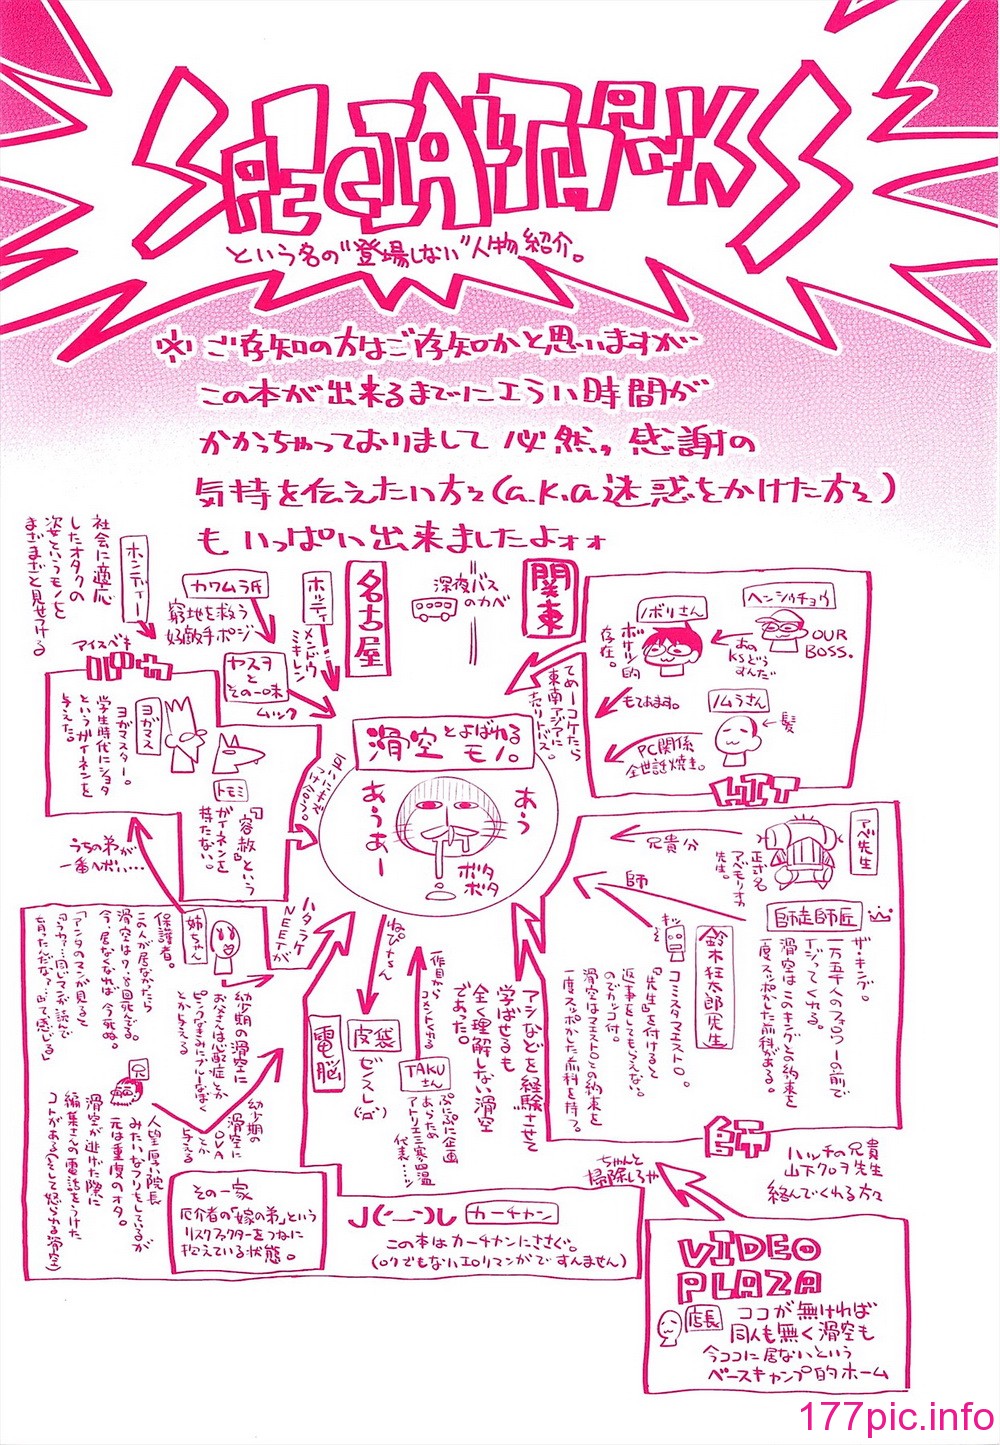 SPECIAL THANKS
という名の"登場しない"人物紹介。
※ご存知の方はご存知かと思いますが
この本が出来るまでにエラい時間が
かかっちゃっておりまして必然、感謝の
気持を伝えたい方々(a.k.a迷惑をかけた方々)
もいっぱい出来ましたよォォ
社会に適応
したオタクの
姿というモノを
まざまざと見せつける
ホンディー
カワムラ氏
窮地を救う
好敵手ポジ
ホッティ
名古屋
深夜バス
のカベ
関東
ヤスヲ
と
その一味
ムハック
アイスベキ
ヨガマス
ヨガマスター。
学生時代にショタ
というガイネンを
与えた。
トモミ
「容赦」という
ガイネンを
持たない。
うちの弟が
一番ヘボい…
滑空とよばれる
モノ。
あうあー
あう
ボタ
ボタ
てめーコケたら
東南アジアに
売りトバス。
ヘンシュウチョウ
OUR
BOSS.
ノボリさん
ボサツ的
存在。
あのKSどう
すんだ
もてあます。
ノムラさん
髪
PC関係
全世話焼き。
HIT
アベ先生
正式名
アベモリオカ
先生。
兄貴分
師
師走師匠
ザ・キング。
一万五千人のフォロワーの前で
イジってくれる。
滑空はこのキングとの約束を
一度スッポかした前科がある。
鈴木狂太郎先生
コミスタマエストロ。
「先生」を付けると
返事をしてもらえない。
のでカッコ付。
滑空はマエストロとの約束を
一度スッポかした前科を持てる。
師
ハッチの兄貴
山下クロヲ先生
絡んでくれる方々
ハタラケ
NEETが
姉ちゃん
保護者。
この人が居なかったら
滑空は17,8回死んでる。
今、居なくなれば今死ぬ。
「アンタのマンガ見ると
『うわァ…同じマンガ読んで
育ったんだなァ…』って感じる」
幼少期の滑空に
お父さんは心配症とか
ピンクなきみにブルーなぼく
とか与える
兄
人望厚い院長
みたいなフリをしているが
元は重度のオタ。
滑空が逃げた際に
編集さんの電話をうけた
コトがある(そして怒られる滑空)
幼少期の
滑空に
OVA
とか
与える
その一家
厄介者の「嫁の弟」という
リスクファクターをつねに
控えている状態。
電脳
ねぴぃちん
皮袋
ゼンスレ(;´Д`)
作目から
コメントくれる
TAKU
さん
ぷにぷに企画
あらため
アトリエ三寒四温
代表…
アシなどを経験させて
学ばせるも
全く理解しない滑空
であった。
J(´ー`)し カーチャン
この本はカーチャンにささぐ。
(ロクでもないエロリマンガですんません)
ちゃんと
掃除しろや
VIDEO
PLAZA
店長
ココが無ければ
同人も無く滑空も
今ココに居ないという
ベースキャンプ的ホーム
177pic.info